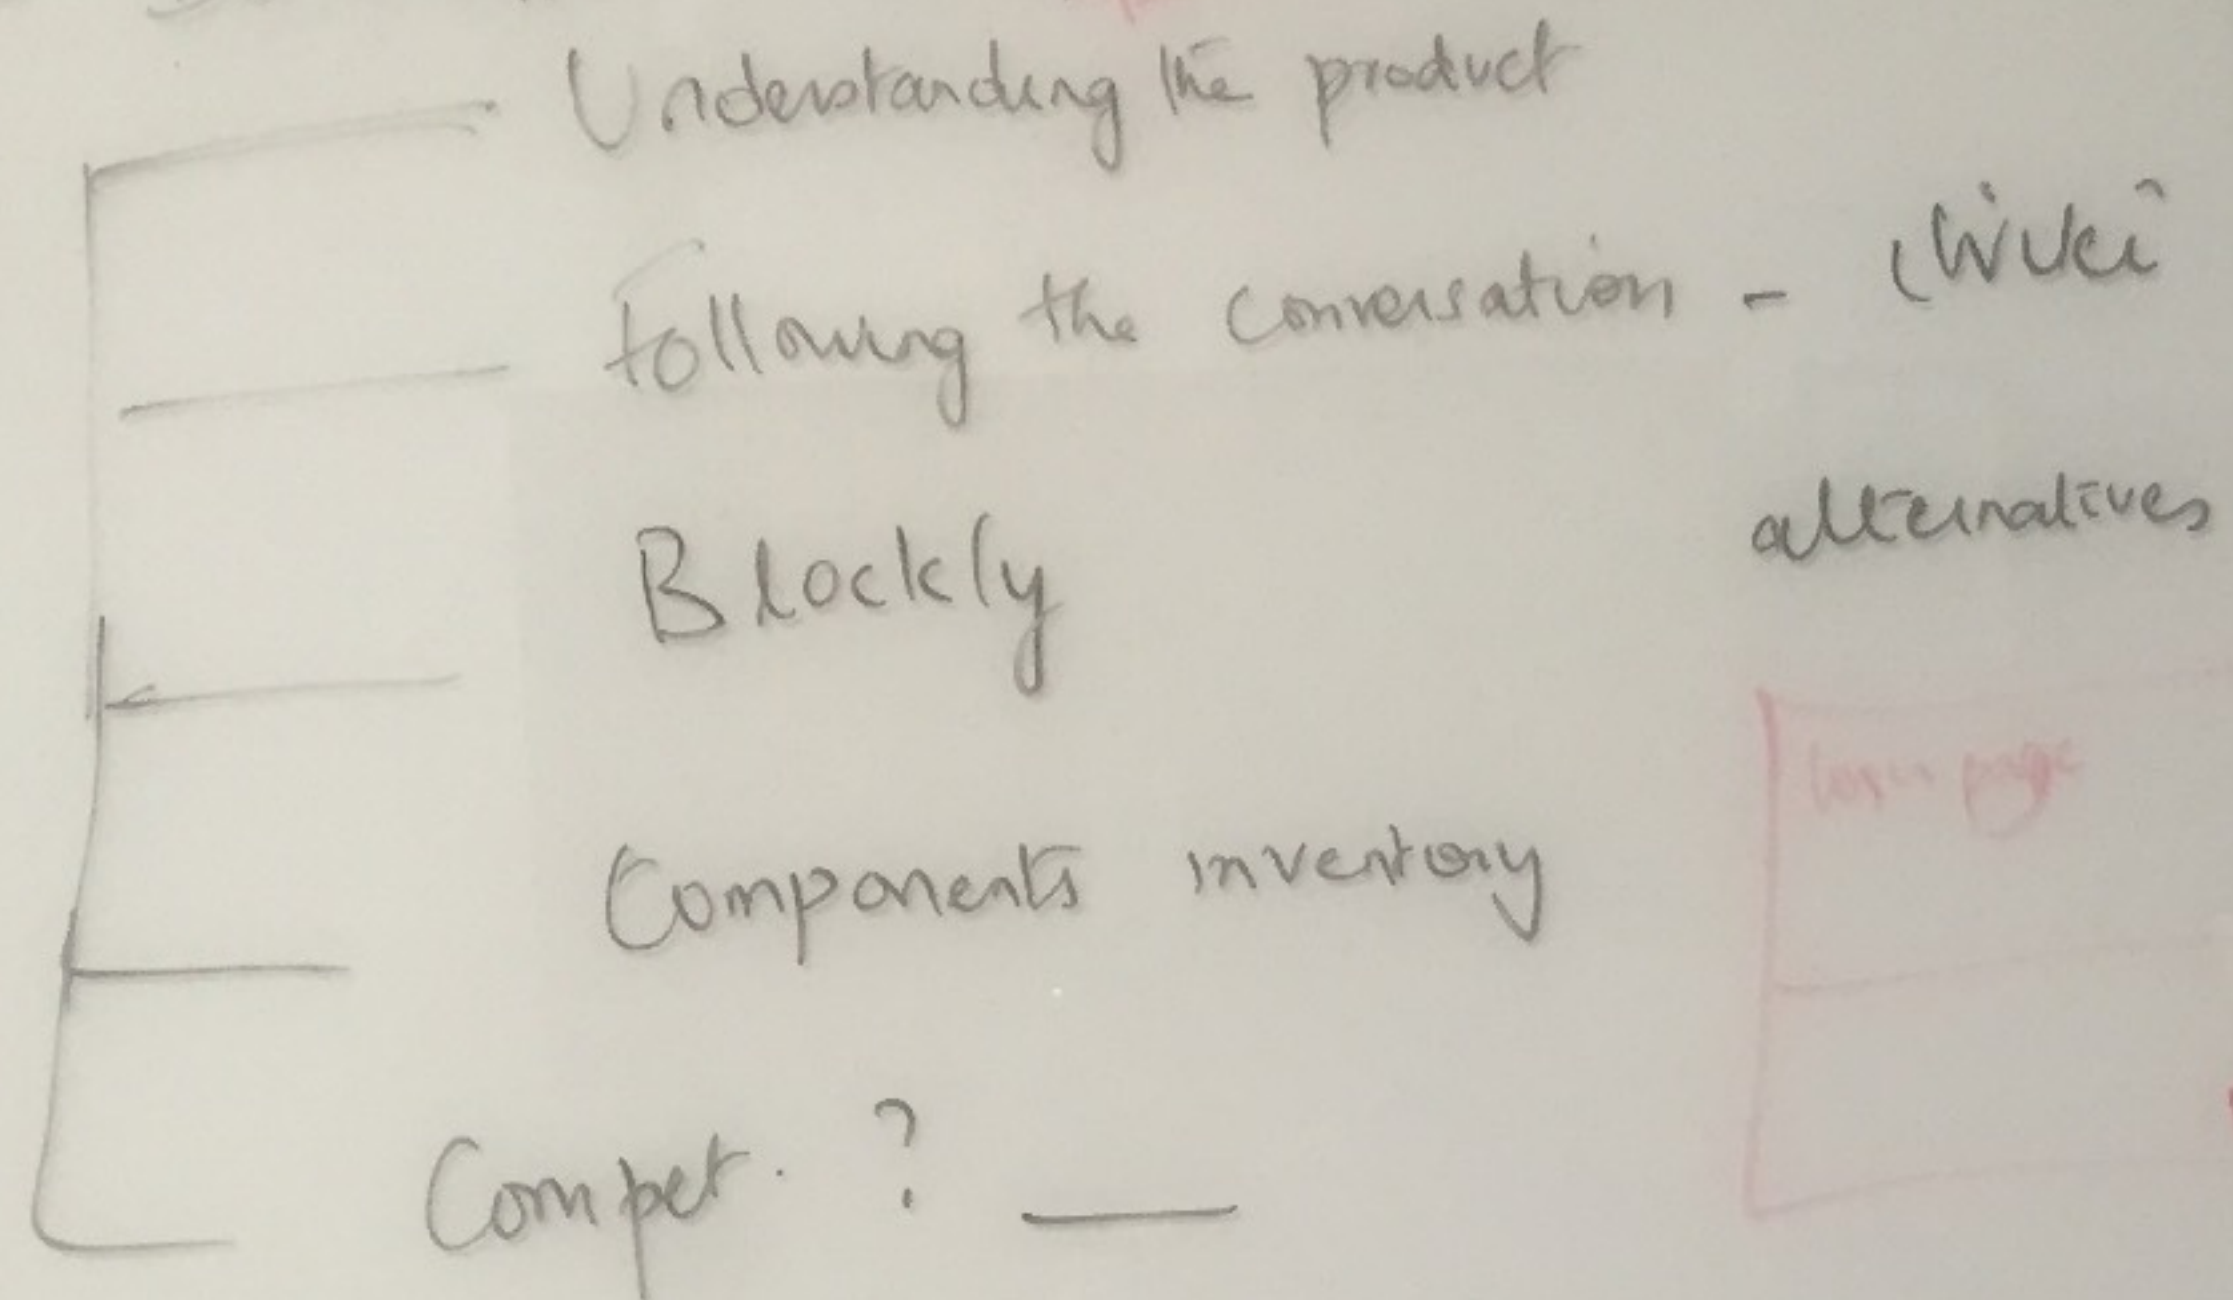 Understanding the product
Following the conversation - Wiki
alternatives
Blockly
Components inventory
page
Compet. ? __